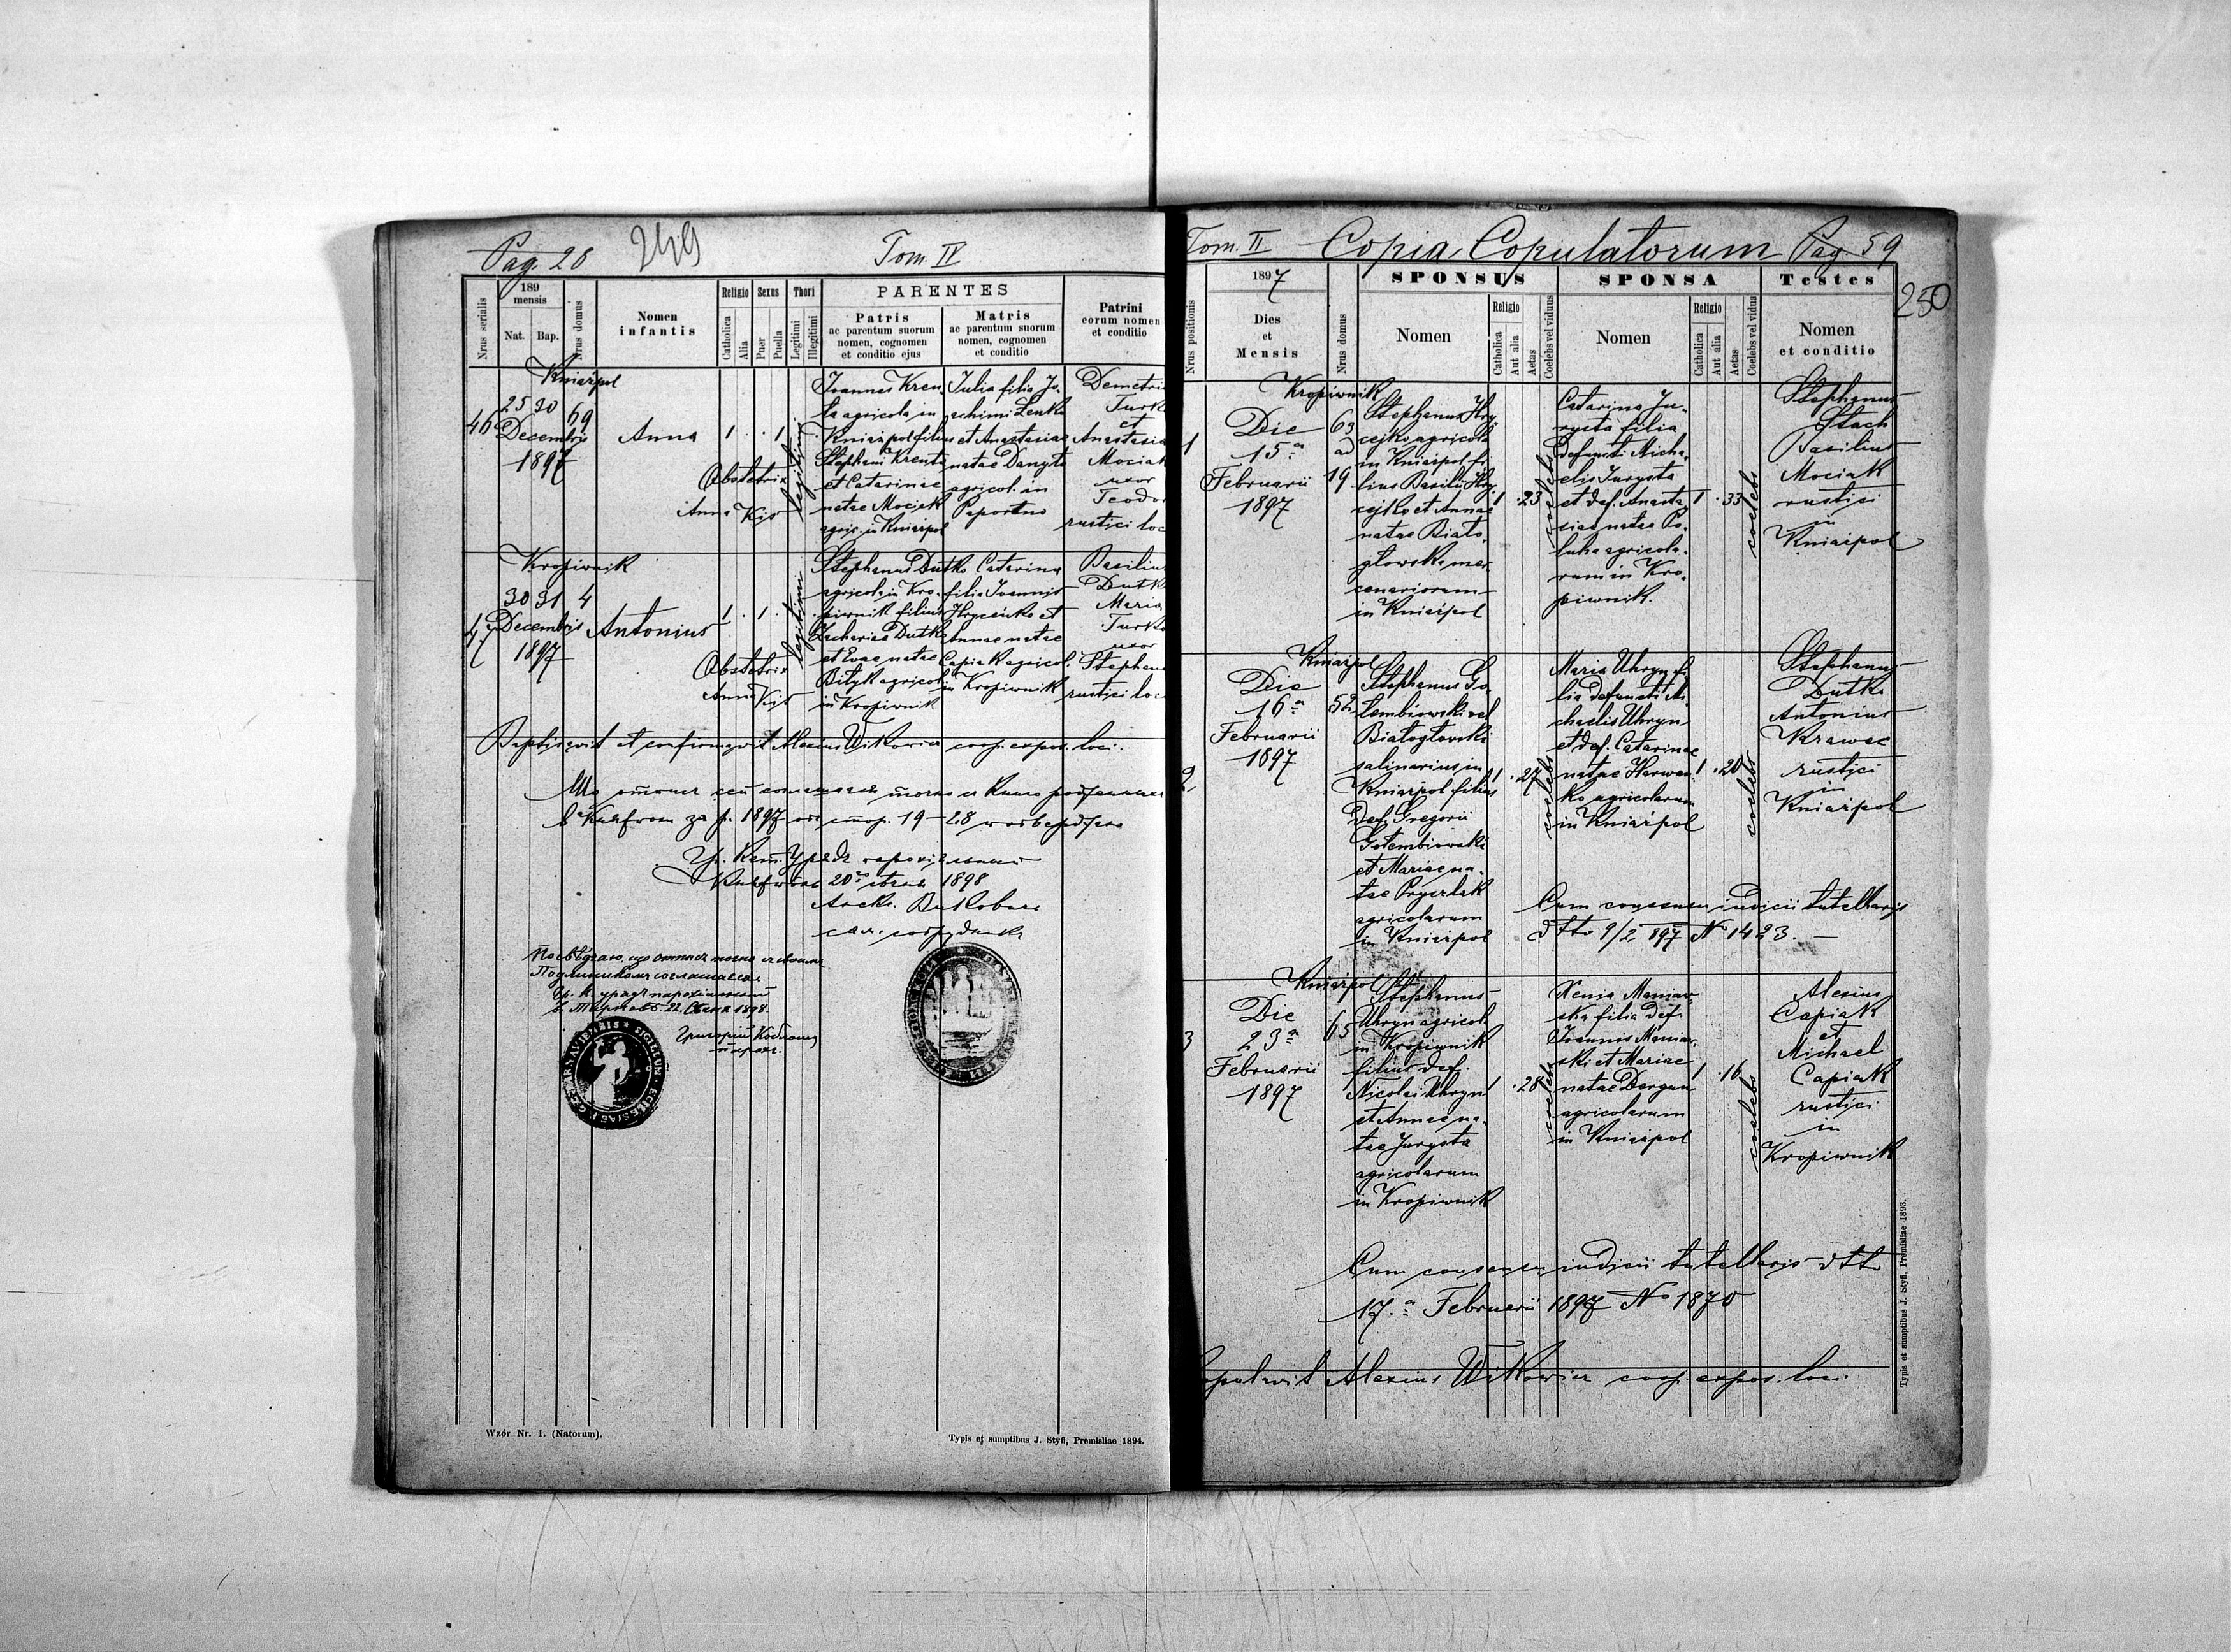 Pag. 28 249 Tom. IV
Nrus serialis
189
mensis
Nat. Bap.
Nrus domus
Nomen
infantis
Religio Sexus Thori
Catholica
Alia
Puer
Puella
Legitimi
Illegitimi
PARENTES
Patris
ac parentum suorum
nomen, cognomen
et conditio ejus
Matris
ac parentum suorum
nomen, cognomen
et conditio
Patrini
eorum nomen
et conditio
Kniażpol
46
25 30 69
Decembris
1897
Anna
1 . . 1
legitimi
Obstetrix
Anna Kijs
Joannes Kren-
ta agricola in
Kniażpol filius
Stephani Krenta
et Catarinae
natae Mociak
agric. in Kniażpol
Julia filia Jo-
achimi Lenko
et Anastasiae
natae Danyto
agricol. in
Paportno
Demetri
Turk
et
Anastasia
Mociak
uxor
Teodo
rustici loc
Kropiwnik
47
30 31 4
Decembris
1897
Antonius
1 . 1 .
legitimi
Obstetrix
Anna Kijs
Stephanus Dutko
agricola in Kro-
piwnik filius
Zachariae Dutko
et Evae natae
Bilyk agricol.
in Kropiwnik
Catarina
filia Joannis
Hryceńko et
Annae natae
Capiak agricol.
in Kropiwnik
Basilius
Dutk
Maria
Turk
uxor
Stephan
rustici loc
Baptizavit et confirmavit Alexius Witkowicz coop. expos. loci.
1897 19-28
20 1898
22 1898
Wzór Nr. 1. (Natorum).
Typis et sumptibus J. Styfi, Premisliae 1894.
Tom. II Copia Copulatorum Pag. 59
250
Nrus positionis
1897
Dies
et
Mensis
Nrus domus
SPONSUS
Nomen
Religio
Catholica
Aut alia
Aetas
Coelebs vel viduus
SPONSA
Nomen
Religio
Catholica
Aut alia
Aetas
Coelebs vel vidua
Testes
Nomen
et conditio
Kropiwnik
1
Die
15.a
Februarii
1897
63
ad
19
Stephanus Hry-
cejko agricola
in Kniażpol fi-
lius Basilii Hry-
cejko et Annae
natae Biało-
głowska mer-
cenariorum
in Kniażpol
1 . 23
coelebs
Catarina Ju-
rysta filia
defuncti Micha-
elis Jurysta
et def. Anasta-
siae natae Po-
luha agricola-
rum in Kro-
piwnik.
1 . 33
coelebs
Stephanus
Stach
Basilius
Mociak
rustici
in
Kniażpol
Kniażpol
2
Die
16.a
Februarii
1897
52
Stephanus Go-
łembiowski vel
Białogłowski
salinarius in
Kniażpol filius
def. Gregorii
Gołembiowski
et Mariae na-
tae Pryerlak
agricolarum
in Kniażpol
1 . 27
coelebs
Maria Uhryn fi-
lia defuncti Mi-
chaelis Uhryn
et def. Catarinae
natae Harwan-
ko agricolarum
in Kniażpol
1 . 20
coelebs
Stephanus
Dutko
Antonius
Krawec
rustici
in
Kniażpol
Cum consensu iudicii tutellaris
dtto 9/2 897 No 1423. —
Kniażpol
3
Die
23.a
Februarii
1897
65
Stephanus
Uhryn agricola
in Kropiwnik
filius def.
Nicolai Uhryn
et Annae na-
tae Jurysta
agricolarum
in Kropiwnik
1 . 28
coelebs
Xenia Maniaw-
ska filia def.
Joannis Maniaw-
ski et Mariae
natae Dorgun
agricolarum
in Kniażpol
1 . 16
coelebs
Alexius
Capiak
et
Michael
Capiak
rustici
in
Kropiwnik
Cum consensu iudicii tutellaris dtto
17.a Februarii 1897 No 1870
Copulavit Alexius Witkowicz coop. expos. loci.
Typis et sumptibus J. Styfi, Premisliae 1893.